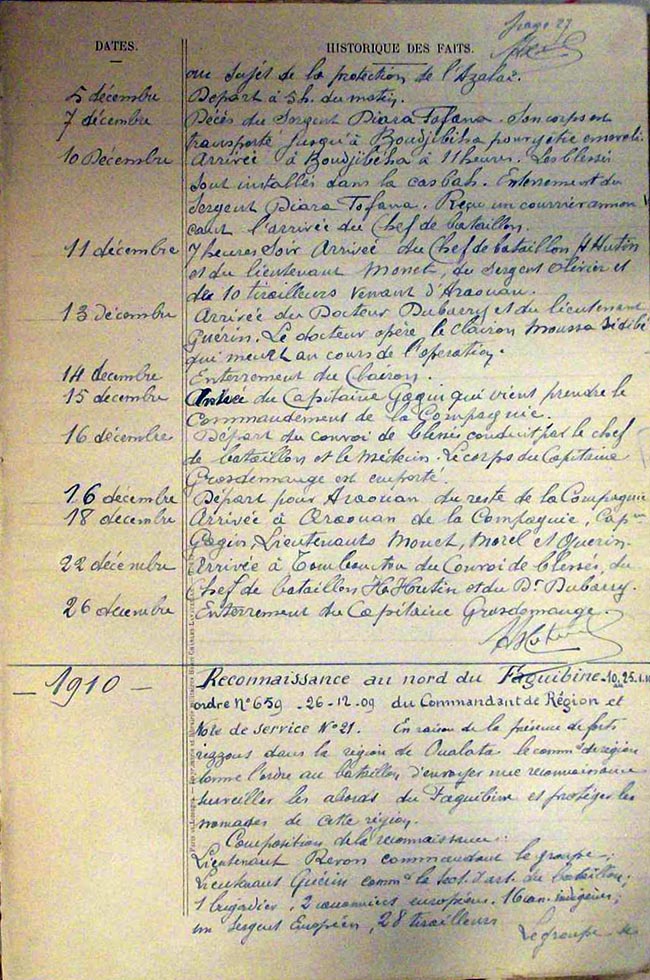 page 27
DATES. HISTORIQUE DES FAITS.
au sujet de la protection de l'Azalaï.
5 décembre Départ à 5 h. du matin.
7 décembre Décès du Sergent Diara Tofana. Son corps est
transporté jusqu'à Boudjibéha pour y être enseveli.
10 Décembre Arrivée à Boudjibéha à 11 heures. Les blessés
sont installés dans la casbah. Enterrement du
Sergent Diara Tofana. Reçu un courrier annon
çant l'arrivée du Chef de bataillon.
11 décembre 7 heures Soir Arrivée du Chef de bataillon H Hutin
et du lieutenant Monet, du Sergent Olivier et
de 10 tirailleurs venant d'Araouan.
13 décembre Arrivée du Docteur Dubarry et du lieutenant
Guérin. Le docteur opère le clairon Moussa Sidibé
qui meurt au cours de l'opération.
14 décembre Enterrement du Clairon.
15 décembre Arrivée du Capitaine Gagin qui vient prendre le
Commandement de la Compagnie.
16 décembre Départ du convoi de blessés conduit par le chef
de bataillon et le Médecin. Le corps du Capitaine
Grosdemange est emporté.
16 décembre Départ pour Araouan du reste de la Compagnie
18 décembre Arrivée à Araouan de la Compagnie, Capne
Gagin, Lieutenants Monet, Morel et Guérin.
22 décembre Arrivée à Tombouctou du Convoi de blessés, du
Chef de bataillon H. Hutin et du Dr Dubarry.
26 décembre Enterrement du Capitaine Grosdemange.
HHutin
- 1910 - Reconnaissance au nord du Faguibine
ordre N° 659 - 26-12-09 du Commandant de Région et
Note de service N° 21. En raison de la présence de forts
rezzous dans la région de Oualata le commt de région
donne l'ordre au bataillon d'envoyer une reconnaissance
surveiller les abords du Faguibine et protéger les
nomades de cette région.
Composition de la reconnaissance :
Lieutenant Revon commandant le groupe ;
Lieutenant Guérin commt la sect. d'art. du bataillon ;
1 brigadier, 2 canonniers européens. 16 can. indigènes ;
un Sergent Européen, 28 tirailleurs
Le groupe